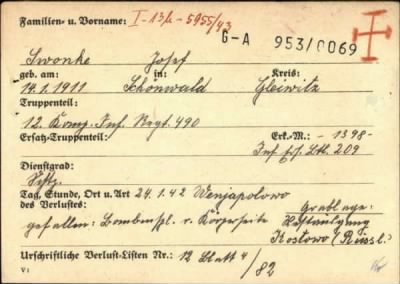 Familien- u. Vorname: I-13/2-5955/43
G-A 953/0069
Swonke Josef
geb. am: in: Kreis:
14.1.1911 Schönwald Gleiwitz
Truppenteil:
12. Komp. Inf. Regt. 490
Ersatz-Truppenteil: Erk.-M.: -1398-
Inf. Btl. 209
Dienstgrad:
Tag, Stunde, Ort u. Art 24.1.42 Wenjapolowo
des Verlustes: Grablage:
gefallen: Bombenspl. r. Körperseite
Kostowo (Russl.)
Urschriftliche Verlust-Listen Nr.: 12 Blatt 4/
82
V: